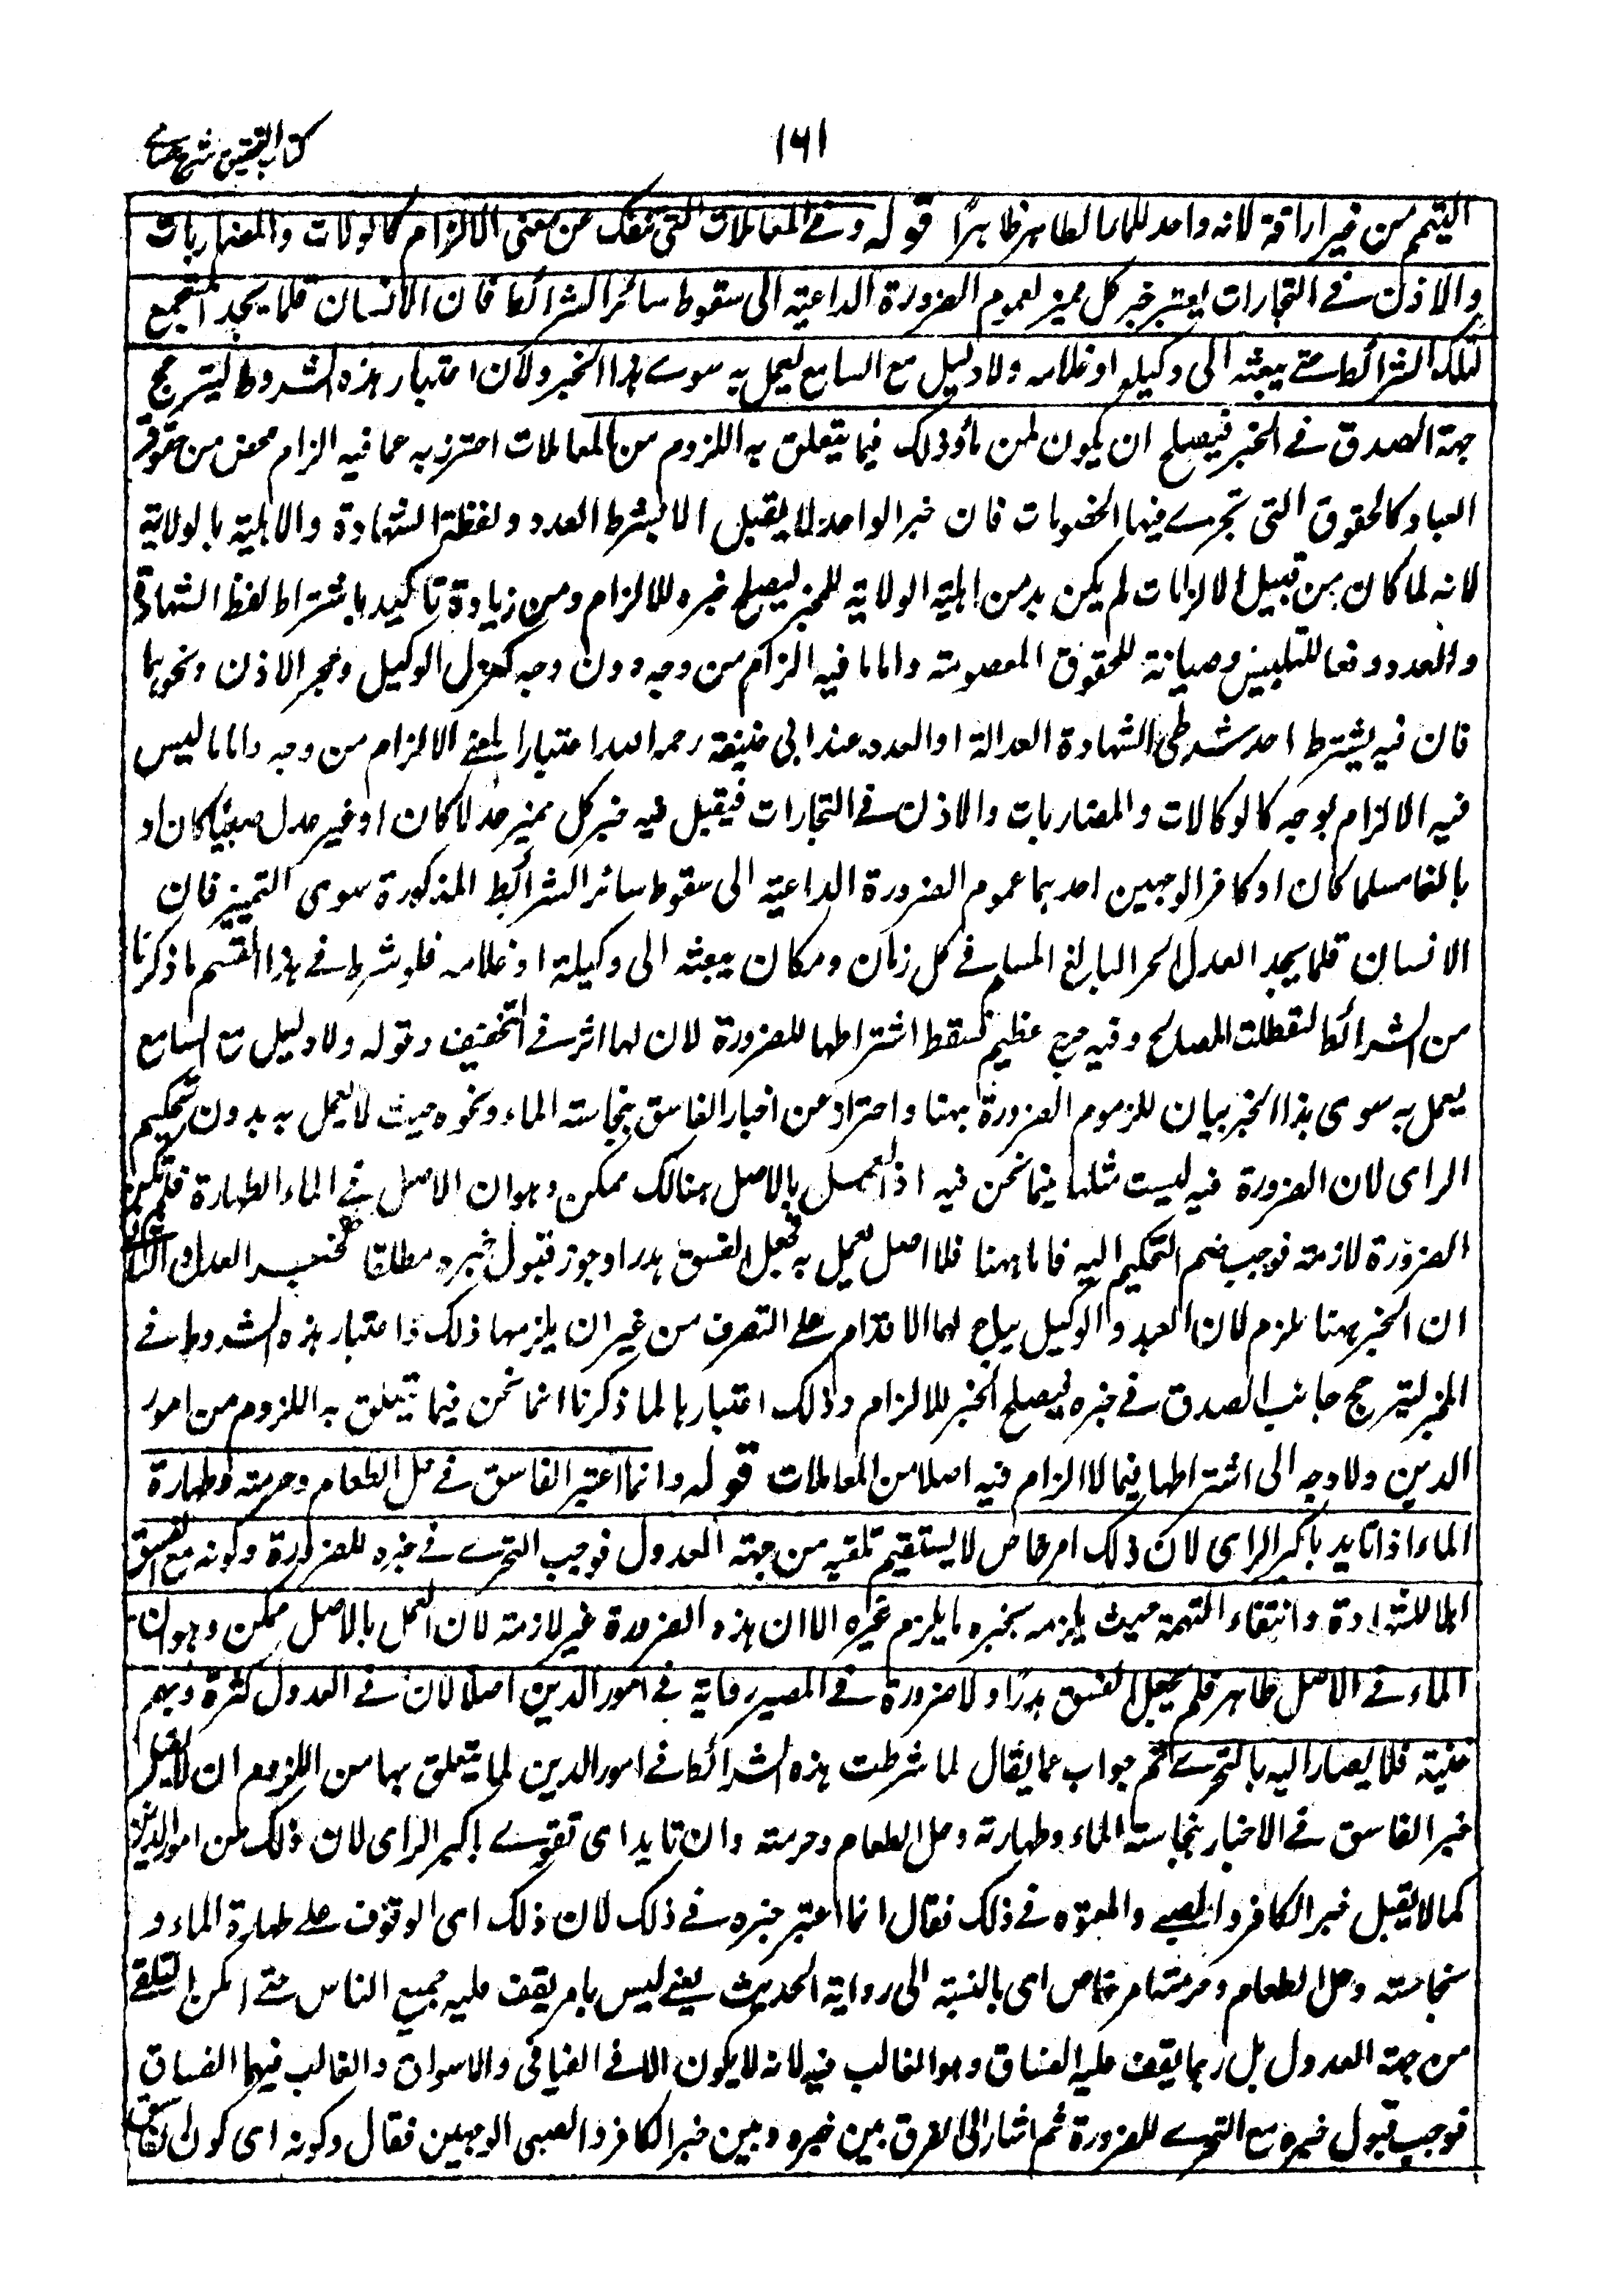 ۱۶۱
كتاب التحقيق شرح حسامى
التيمم من غير اراقة لانه واجد للماء الطاهر ظاهرًا قوله وفي المعاملات التي تنفك عن معنى الالزام كالوكالات والمضاربات
والاذن في التجارات يعتبر خبر كل مميز لعموم الضرورة الداعية الى سقوط سائر الشرائط فان الانسان قلما يجد المستجمع
لتلك الشرائط حتى يبعثه الى وكيله او غلامه ولا دليل مع السامع ليعمل به سوى هذا الخبر ولان اعتبار هذه الشروط ليترجح
جهة الصدق في الخبر فيصلح ان يكون ملزما وذلك فيما يتعلق به اللزوم من المعاملات احترز به عما فيه الزام محض من حقوق
العباد كالحقوق التي تجرى فيها الخصومات فان خبر الواحد لا يقبل الا بشرط العدد ولفظة الشهادة والاهلية بالولاية
لانه لما كان من قبيل الالزامات لم يكن بد من اهلية الولاية للمخبر ليصلح خبره للالزام ومن زيادة تاكيد باشتراط لفظ الشهادة
والعدد دفعا للتلبيس وصيانة للحقوق المعصومة واما ما فيه الزام من وجه دون وجه كعزل الوكيل وحجر الاذن ونحوهما
فان فيه يشترط احد شرطى الشهادة العدالة او العدد عند ابى حنيفة رحمه الله اعتبارا لمعنى الالزام من وجه واما ما ليس
فيه الالزام بوجه كالوكالات والمضاربات والاذن في التجارات فيقبل فيه خبر كل مميز عدلا كان او غير عدل صبيا كان او
بالغا مسلما كان او كافرا لوجهين احدهما عموم الضرورة الداعية الى سقوط سائر الشرائط المذكورة سوى التمييز فان
الانسان قلما يجد العدل الحر البالغ المسلم في كل زمان ومكان يبعثه الى وكيله او غلامه فلو شرط في هذا القسم ما ذكرنا
من الشرائط لتعطلت المصالح وفيه حرج عظيم فسقط اشتراطها للضرورة لان لها اثر في التخفيف وقوله ولا دليل مع السامع
يعمل به سوى هذا الخبر بيان للزوم الضرورة ههنا واحتراز عن اخبار الفاسق بنجاسة الماء ونحوه حيث لا يعمل به بدون تحكيم
الراى لان الضرورة فيه ليست مثلها فيما نحن فيه اذ العمل بالاصل هنالك ممكن وهو ان الاصل في الماء الطهارة فلم تكن
الضرورة لازمة فوجب ضم التحكيم اليه فاما ههنا فلا اصل يعمل به فجعل الفسق هدرا وجوز قبول خبره مطلقا كخبر العدل والثانى
ان الخبر ههنا غير ملزم لان العبد والوكيل يباح لهما الاقدام على التصرف من غير ان يلزمهما ذلك واعتبار هذه الشروط في
المخبر ليترجح جانب الصدق في خبره ليصلح الخبر للالزام وذلك اعتبارها لما ذكرنا انما نحن فيما يتعلق به اللزوم من امور
الدين ولا وجه الى اشتراطها فيما لا الزام فيه اصلا من المعاملات قوله وانما اعتبر الفاسق في حل الطعام وحرمته وطهارة
الماء اذا تايد باكبر الراى لان ذلك امر خاص لا يستقيم تلقيه من جهة العدول فوجب التحرى في خبره للضرورة وكونه مع الفسق
اهلا للشهادة وانتفاء التهمة حيث يلزمه بخبره ما يلزم غيره الا ان هذه الضرورة غير لازمة لان العمل بالاصل ممكن وهو ان
الماء في الاصل طاهر فلم يجعل الفسق هدرًا ولا ضرورة في المصير رواية في امور الدين اصلا لان في العدول كثرة وبهم
غنية فلا يصار اليه بالتحرى ثم جواب عما يقال لما شرطت هذه الشرائط في امور الدين لما يتعلق بها من اللزوم ان لا يقبل
خبر الفاسق في الاخبار بنجاسة الماء وطهارته وحل الطعام وحرمته وان تايد اى تقوى باكبر الراى لان ذلك من امور الدين
كما لا يقبل خبر الكافر والصبى والمعتوه في ذلك فقال انما اعتبر خبره في ذلك لان ذلك اى الوقوف على طهارة الماء و
نجاسته وحل الطعام وحرمته امر خاص اى بالنسبة الى رواية الحديث يعنى ليس بامر يقف عليه جميع الناس حتى امكن التلقى
من جهة العدول بل ربما يقف عليه الفساق وهو الغالب فيه لانه لا يكون الا في الفيافى والاسواق والغالب فيهما الفساق
فوجب قبول خبره مع التحرى للضرورة ثم اشار الى الفرق بين خبره وبين خبر الكافر والصبى لوجهين فقال وكونه اى كون الفاسق